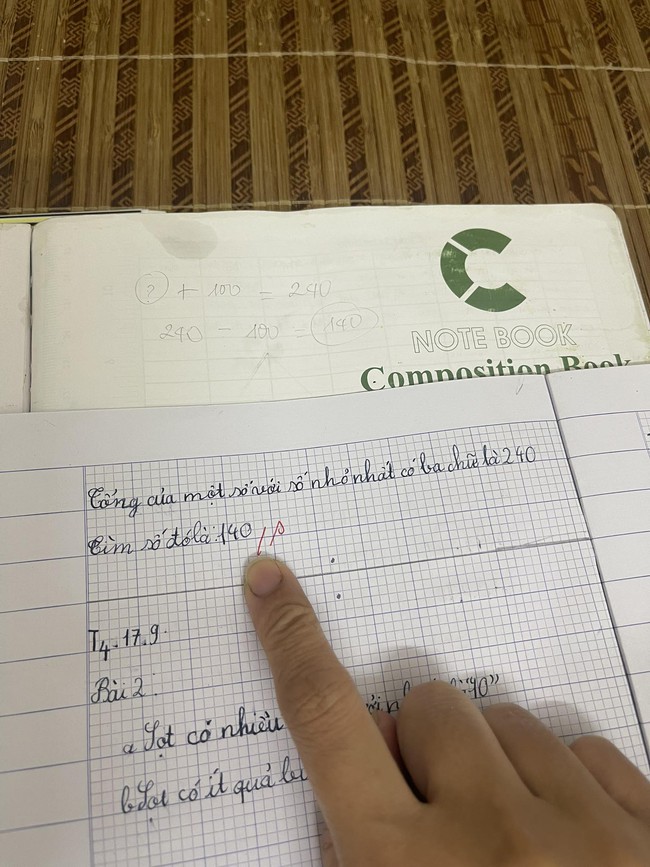 ? + 100 = 240
240 - 100 = 140
C
NOTE BOOK
Composition Book
Tổng của một số với số nhỏ nhất có ba chữ là 240
Tìm số đó là: 140
T4. 17. 9.
Bài 2:
a Sọt có nhiều
b Sọt có ít quả